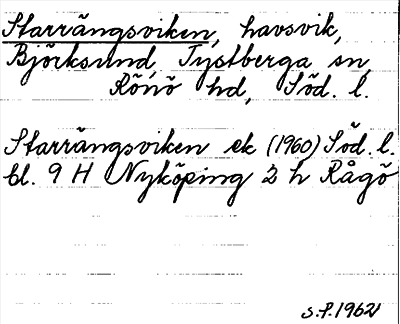 Starrängsviken, havsvik,
Björksund, Tystberga sn,
Rönö hd, Söd. l.
Starrängsviken ek (1960) Söd. l.
bl. 9 H Nyköping 2 h Rågö
S.P. 1962